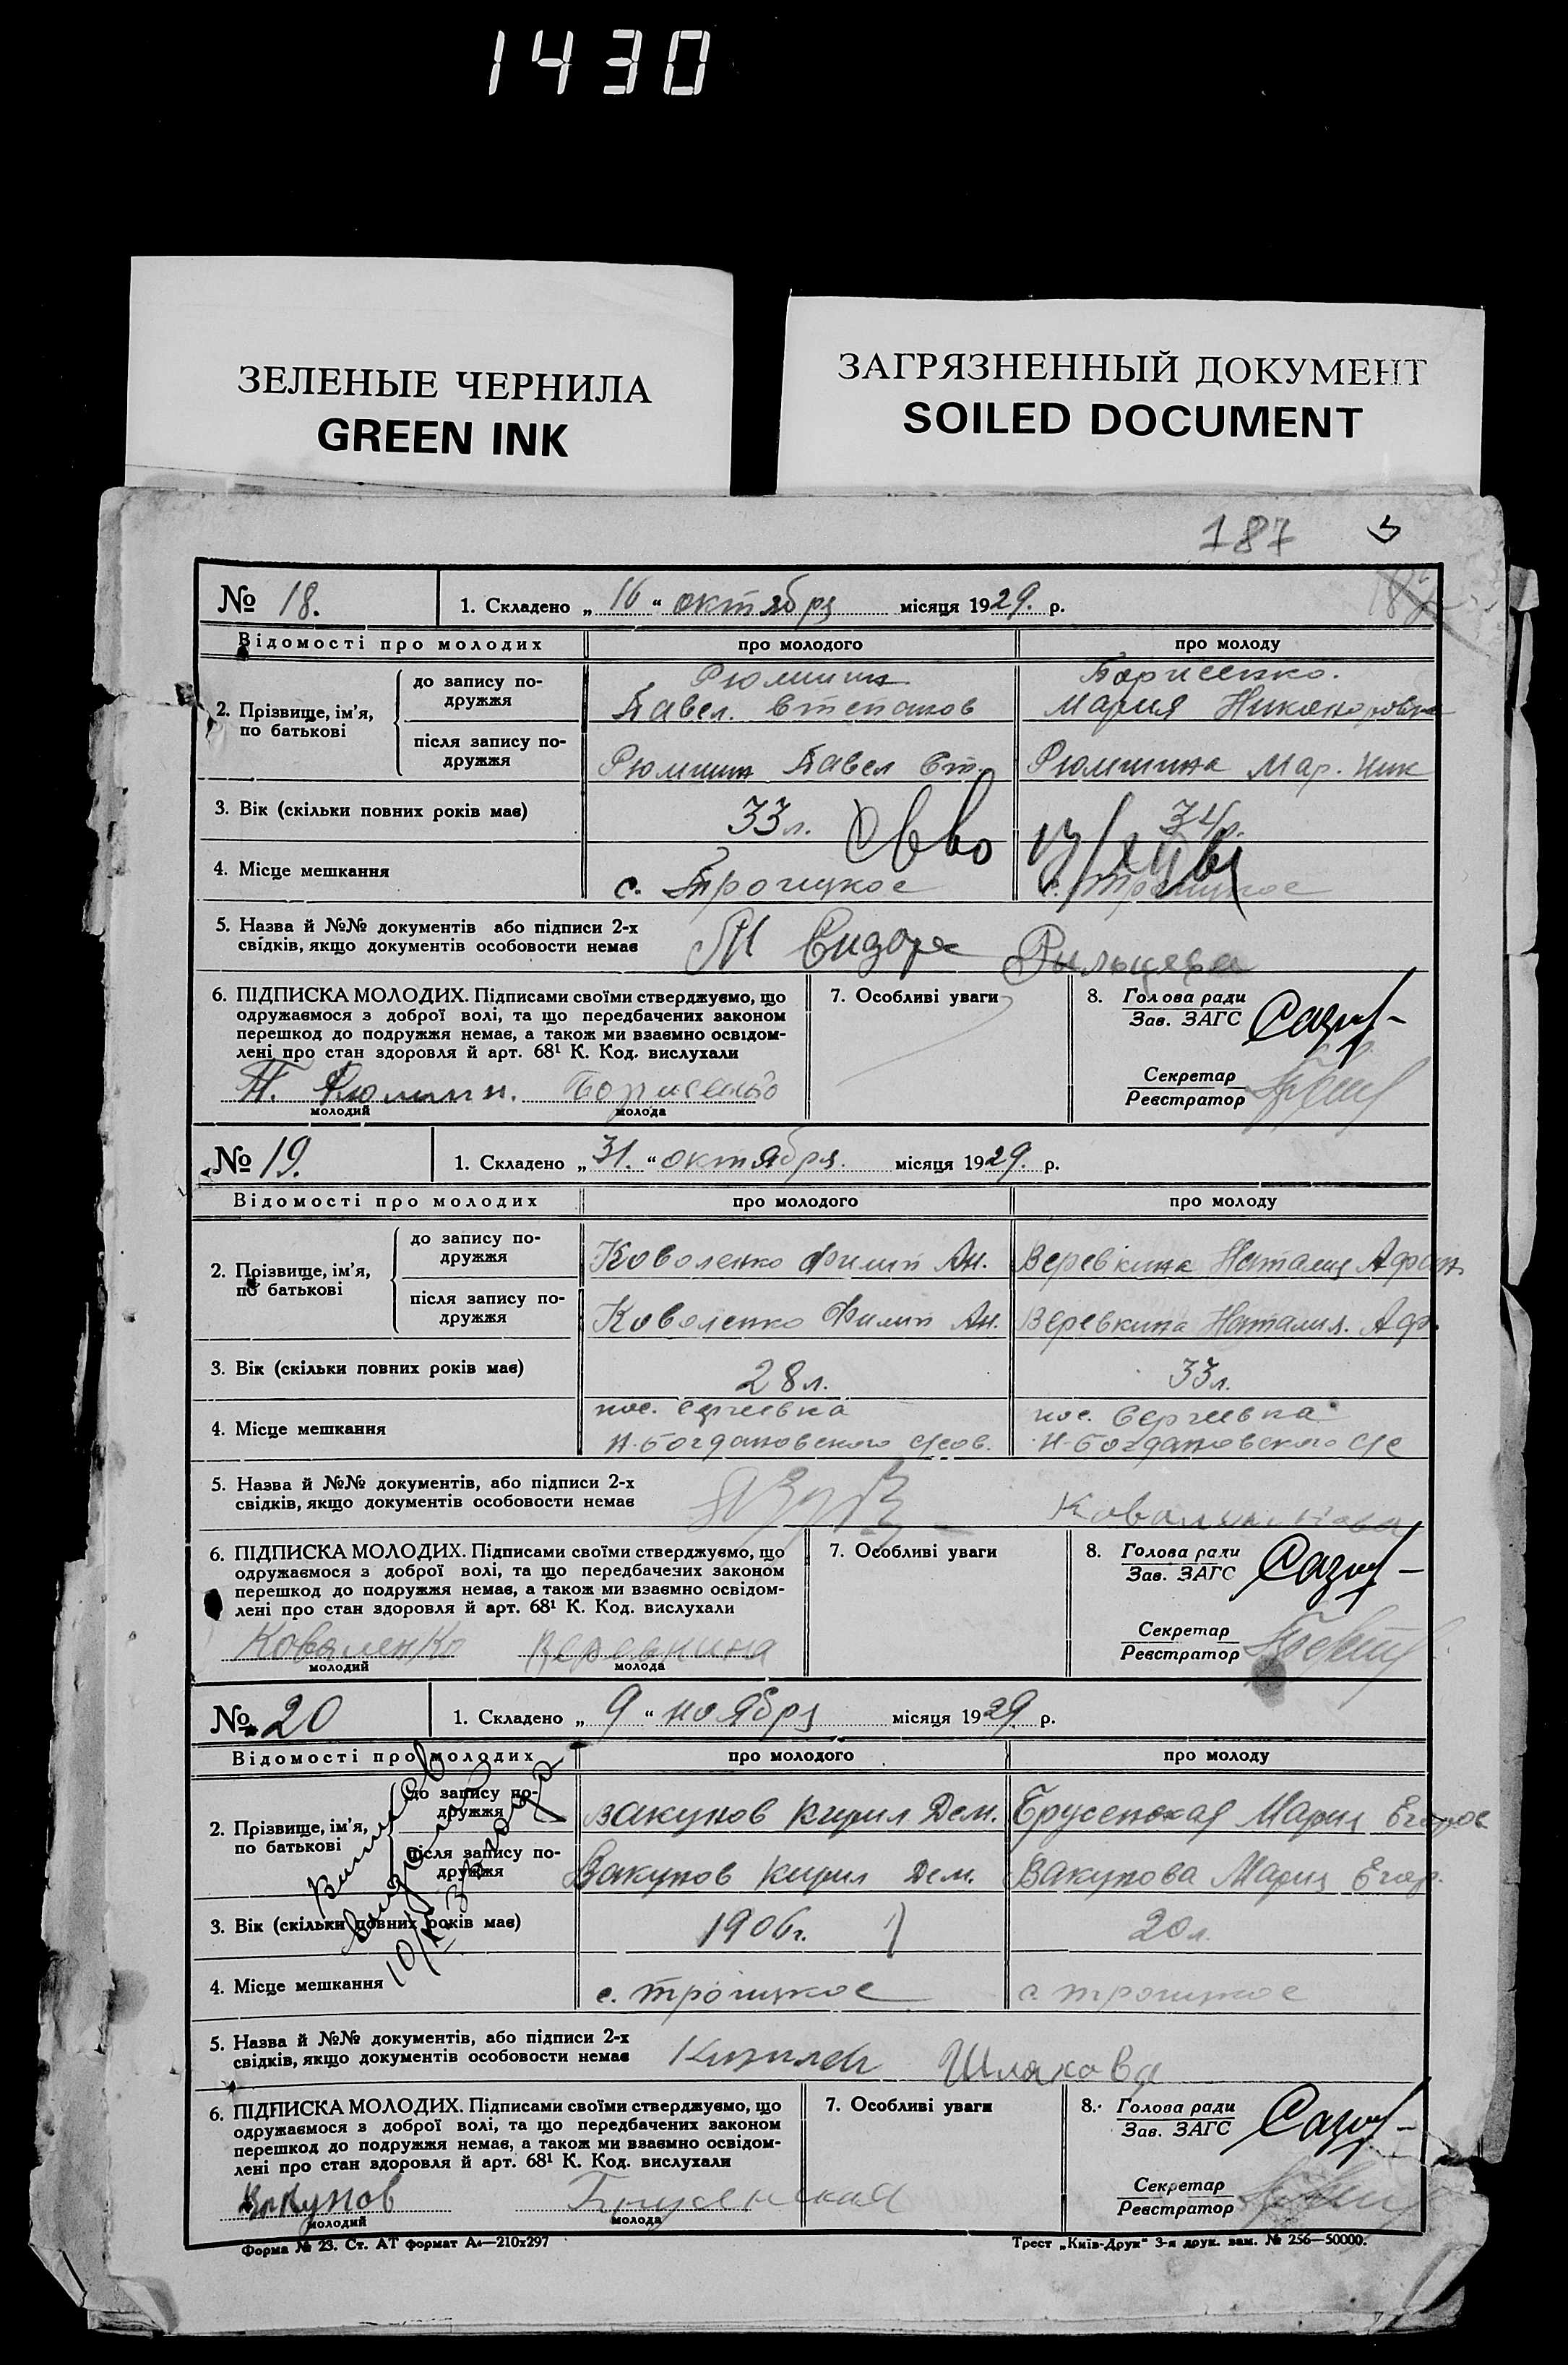 1430
ЗЕЛЕНЫЕ ЧЕРНИЛА
GREEN INK
ЗАГРЯЗНЕННЫЙ ДОКУМЕНТ
SOILED DOCUMENT
187
№ 18. 1. Складено „ 16 “ октября місяця 1929. р.
Відомості про молодих про молодого про молоду
2. Прізвище, ім'я, по батькові
до запису по-дружжя
Рюмшин
Павел. Степанов
Борисенко.
Мария Никаноровна
після запису по-дружжя
Рюмшин Павел Ст.
Рюмшина Мар. Ник
3. Вік (скільки повних років має) 33 л. 34 л.
4. Місце мешкання с. Троицкое с. Троицкое
5. Назва й №№ документів або підписи 2-х
свідків, якщо документів особовости немає
6. ПІДПИСКА МОЛОДИХ. Підписами своїми стверджуємо, що
одружаємося з доброї волі, та що передбачених законом
перешкод до подружжя немає, а також ми взаємно освідом-
лені про стан здоровля й арт. 68¹ К. Код. вислухали
П. Рюмшин. Борисенко
молодий молода
7. Особливі уваги
8. Голова ради
Зав. ЗАГС
Секретар
Реєстратор
№ 19. 1. Складено „ 31. “ октября. місяця 1929. р.
Відомості про молодих про молодого про молоду
2. Прізвище, ім'я, по батькові
до запису по-дружжя
Коволенко Филип Ан.
Веревкина Наталия Афан
після запису по-дружжя
Коволенко Филип Ан.
Веревкина Наталия. Аф.
3. Вік (скільки повних років має) 28 л. 33 л.
4. Місце мешкання
пос. Сергеевка
Н-Богдановского с/сов.
пос. Сергеевка
Н-Богдановского с/с
5. Назва й №№ документів, або підписи 2-х
свідків, якщо документів особовости немає
6. ПІДПИСКА МОЛОДИХ. Підписами своїми стверджуємо, що
одружаємося з доброї волі, та що передбачених законом
перешкод до подружжя немає, а також ми взаємно освідом-
лені про стан здоровля й арт. 68¹ К. Код. вислухали
Коваленко Веревкина
молодий молода
7. Особливі уваги
8. Голова ради
Зав. ЗАГС
Секретар
Реєстратор
№ 20 1. Складено „ 9 “ ноября місяця 1929. р.
Відомості про молодих про молодого про молоду
2. Прізвище, ім'я, по батькові
до запису по-дружжя
Вакунов Кирил Дем.
Брусенская Мария Егоров
після запису по-дружжя
Вакунов Кирил Дем.
Вакунова Мария Егор.
3. Вік (скільки повних років має) 1906 г. 20 л.
4. Місце мешкання с. Троицкое с. Троицкое
5. Назва й №№ документів, або підписи 2-х
свідків, якщо документів особовости немає
Шлякова
6. ПІДПИСКА МОЛОДИХ. Підписами своїми стверджуємо, що
одружаємося з доброї волі, та що передбачених законом
перешкод до подружжя немає, а також ми взаємно освідом-
лені про стан здоровля й арт. 68¹ К. Код. вислухали
Вакунов Брусенская
молодий молода
7. Особливі уваги
8. Голова ради
Зав. ЗАГС
Секретар
Реєстратор
Форма № 23. Ст. АТ формат А4—210х297
Трест „Київ-Друк“ 3-я друк. зам. № 256—50000.